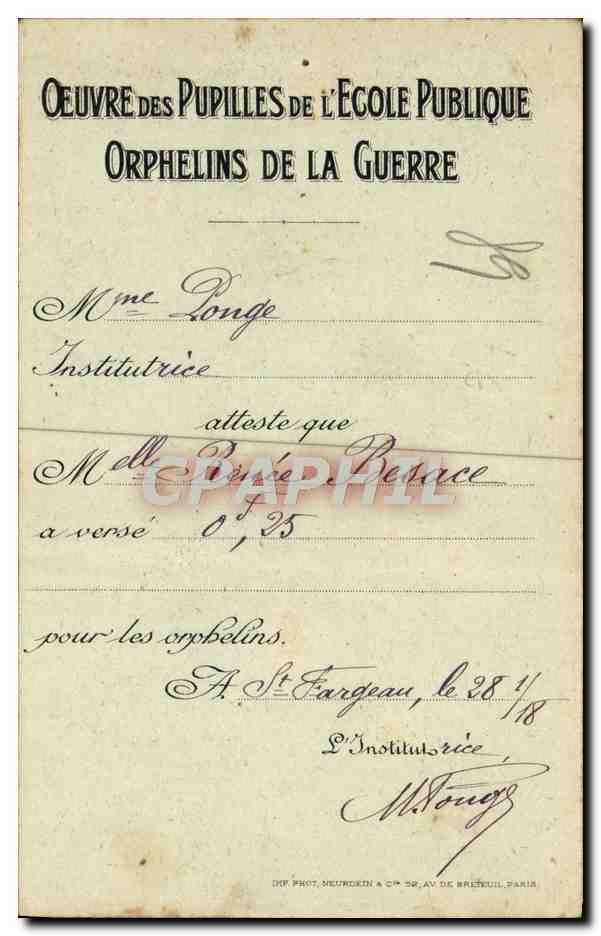 ŒUVRE DES PUPILLES DE L'ECOLE PUBLIQUE
ORPHELINS DE LA GUERRE
Mme Ponge
Institutrice
atteste que
Melle Renée Besace
CPAPHIL
a versé 0f,25
pour les orphelins.
A St Fargeau, le 28 1/18
L'Institutrice,
M. Ponge
IMP. PHOT, NEURDEIN & Cie 52, AV. DE BRETEUIL, PARIS